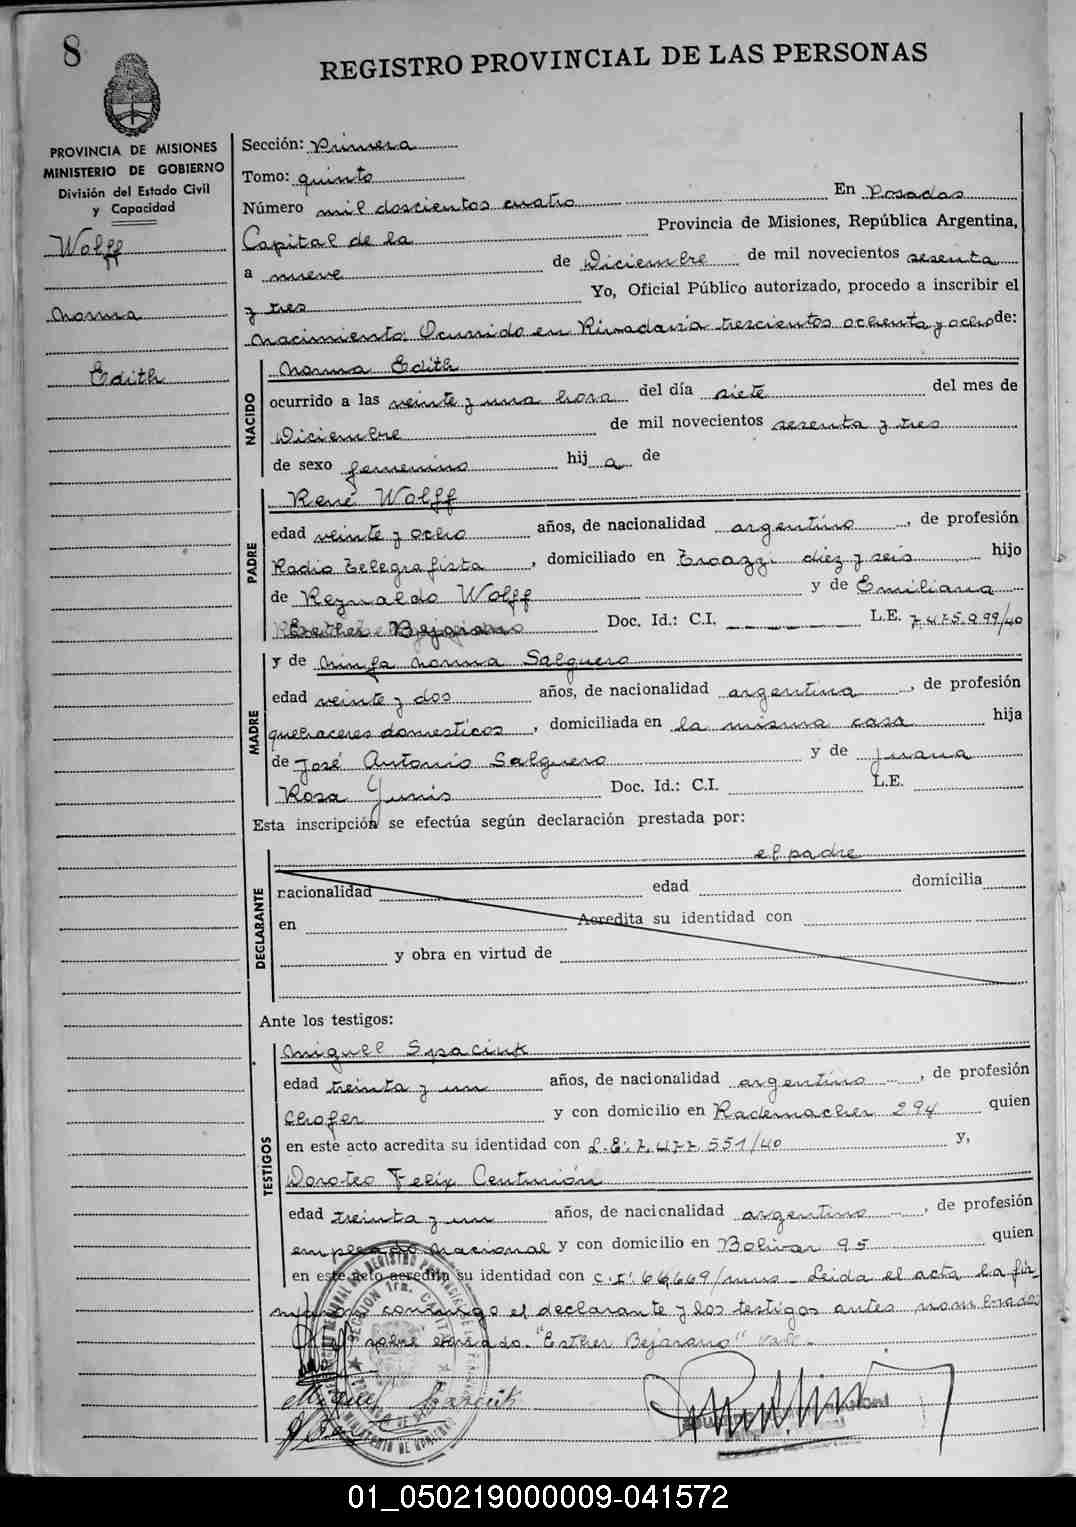 8
REGISTRO PROVINCIAL DE LAS PERSONAS
PROVINCIA DE MISIONES
MINISTERIO DE GOBIERNO
División del Estado Civil
y Capacidad
Wolff
Norma
Edith
Sección: Primera
Tomo: quinto
Número mil doscientos cuatro En Posadas
Capital de la Provincia de Misiones, República Argentina,
a nueve de Diciembre de mil novecientos sesenta
y tres Yo, Oficial Público autorizado, procedo a inscribir el
nacimiento Ocurrido en Rivadavia trescientos ochenta y ocho de:
NACIDO
Norma Edith
ocurrido a las veinte y una hora del día siete del mes de
Diciembre de mil novecientos sesenta y tres
de sexo femenino hij a de
PADRE
René Wolff
edad veinte y ocho años, de nacionalidad argentino, de profesión
Radio Telegrafista, domiciliado en diez y seis hijo
de Reynaldo Wolff y de Emiliana
Esther Bejarano Doc. Id.: C.I. L.E. 7.475.099/40
MADRE
y de Ninfa Norma Salguero
edad veinte y dos años, de nacionalidad argentina, de profesión
quehaceres domesticos, domiciliada en la misma casa hija
de José Antonio Salguero y de Juana
Rosa Yunis Doc. Id.: C.I. L.E.
Esta inscripción se efectúa según declaración prestada por:
DECLARANTE
el padre
nacionalidad edad domicilia
en Acredita su identidad con
y obra en virtud de
Ante los testigos:
TESTIGOS
Miguel Spaciuk
edad treinta y un años, de nacionalidad argentino, de profesión
Chofer y con domicilio en Rademacher 294 quien
en este acto acredita su identidad con L.E. 7.477.551/40 y,
Doroteo Felix Centurión
edad treinta y un años, de nacionalidad argentino, de profesión
empleado nacional y con domicilio en Bolivar 95 quien
en este acto acredita su identidad con C.I. 66,669/mnes Leida el acta la fir
conmigo el declarante y los testigos antes nombrados
sobre borrado "Esther Bejarano" vale.
01_050219000009-041572